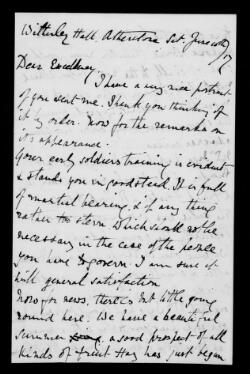 Witherley Hall Atherstone Sat June
/17
Dear Excellency
I have a very nice portrait
of you sent me. Thank you thinking of
it my order. Now for the remarks on
its appearance.
Your early soldiers training is evident
& stands you in good stead. It is full
of martial bearing, & if any thing
rather too stern which would not be
necessary in the case of the people
you have to govern. I am sure it
will general satisfaction
Now for news, there is but little going
round here. We have a beautiful
summer & a good prospect of all
kinds of fruit Hay has just began